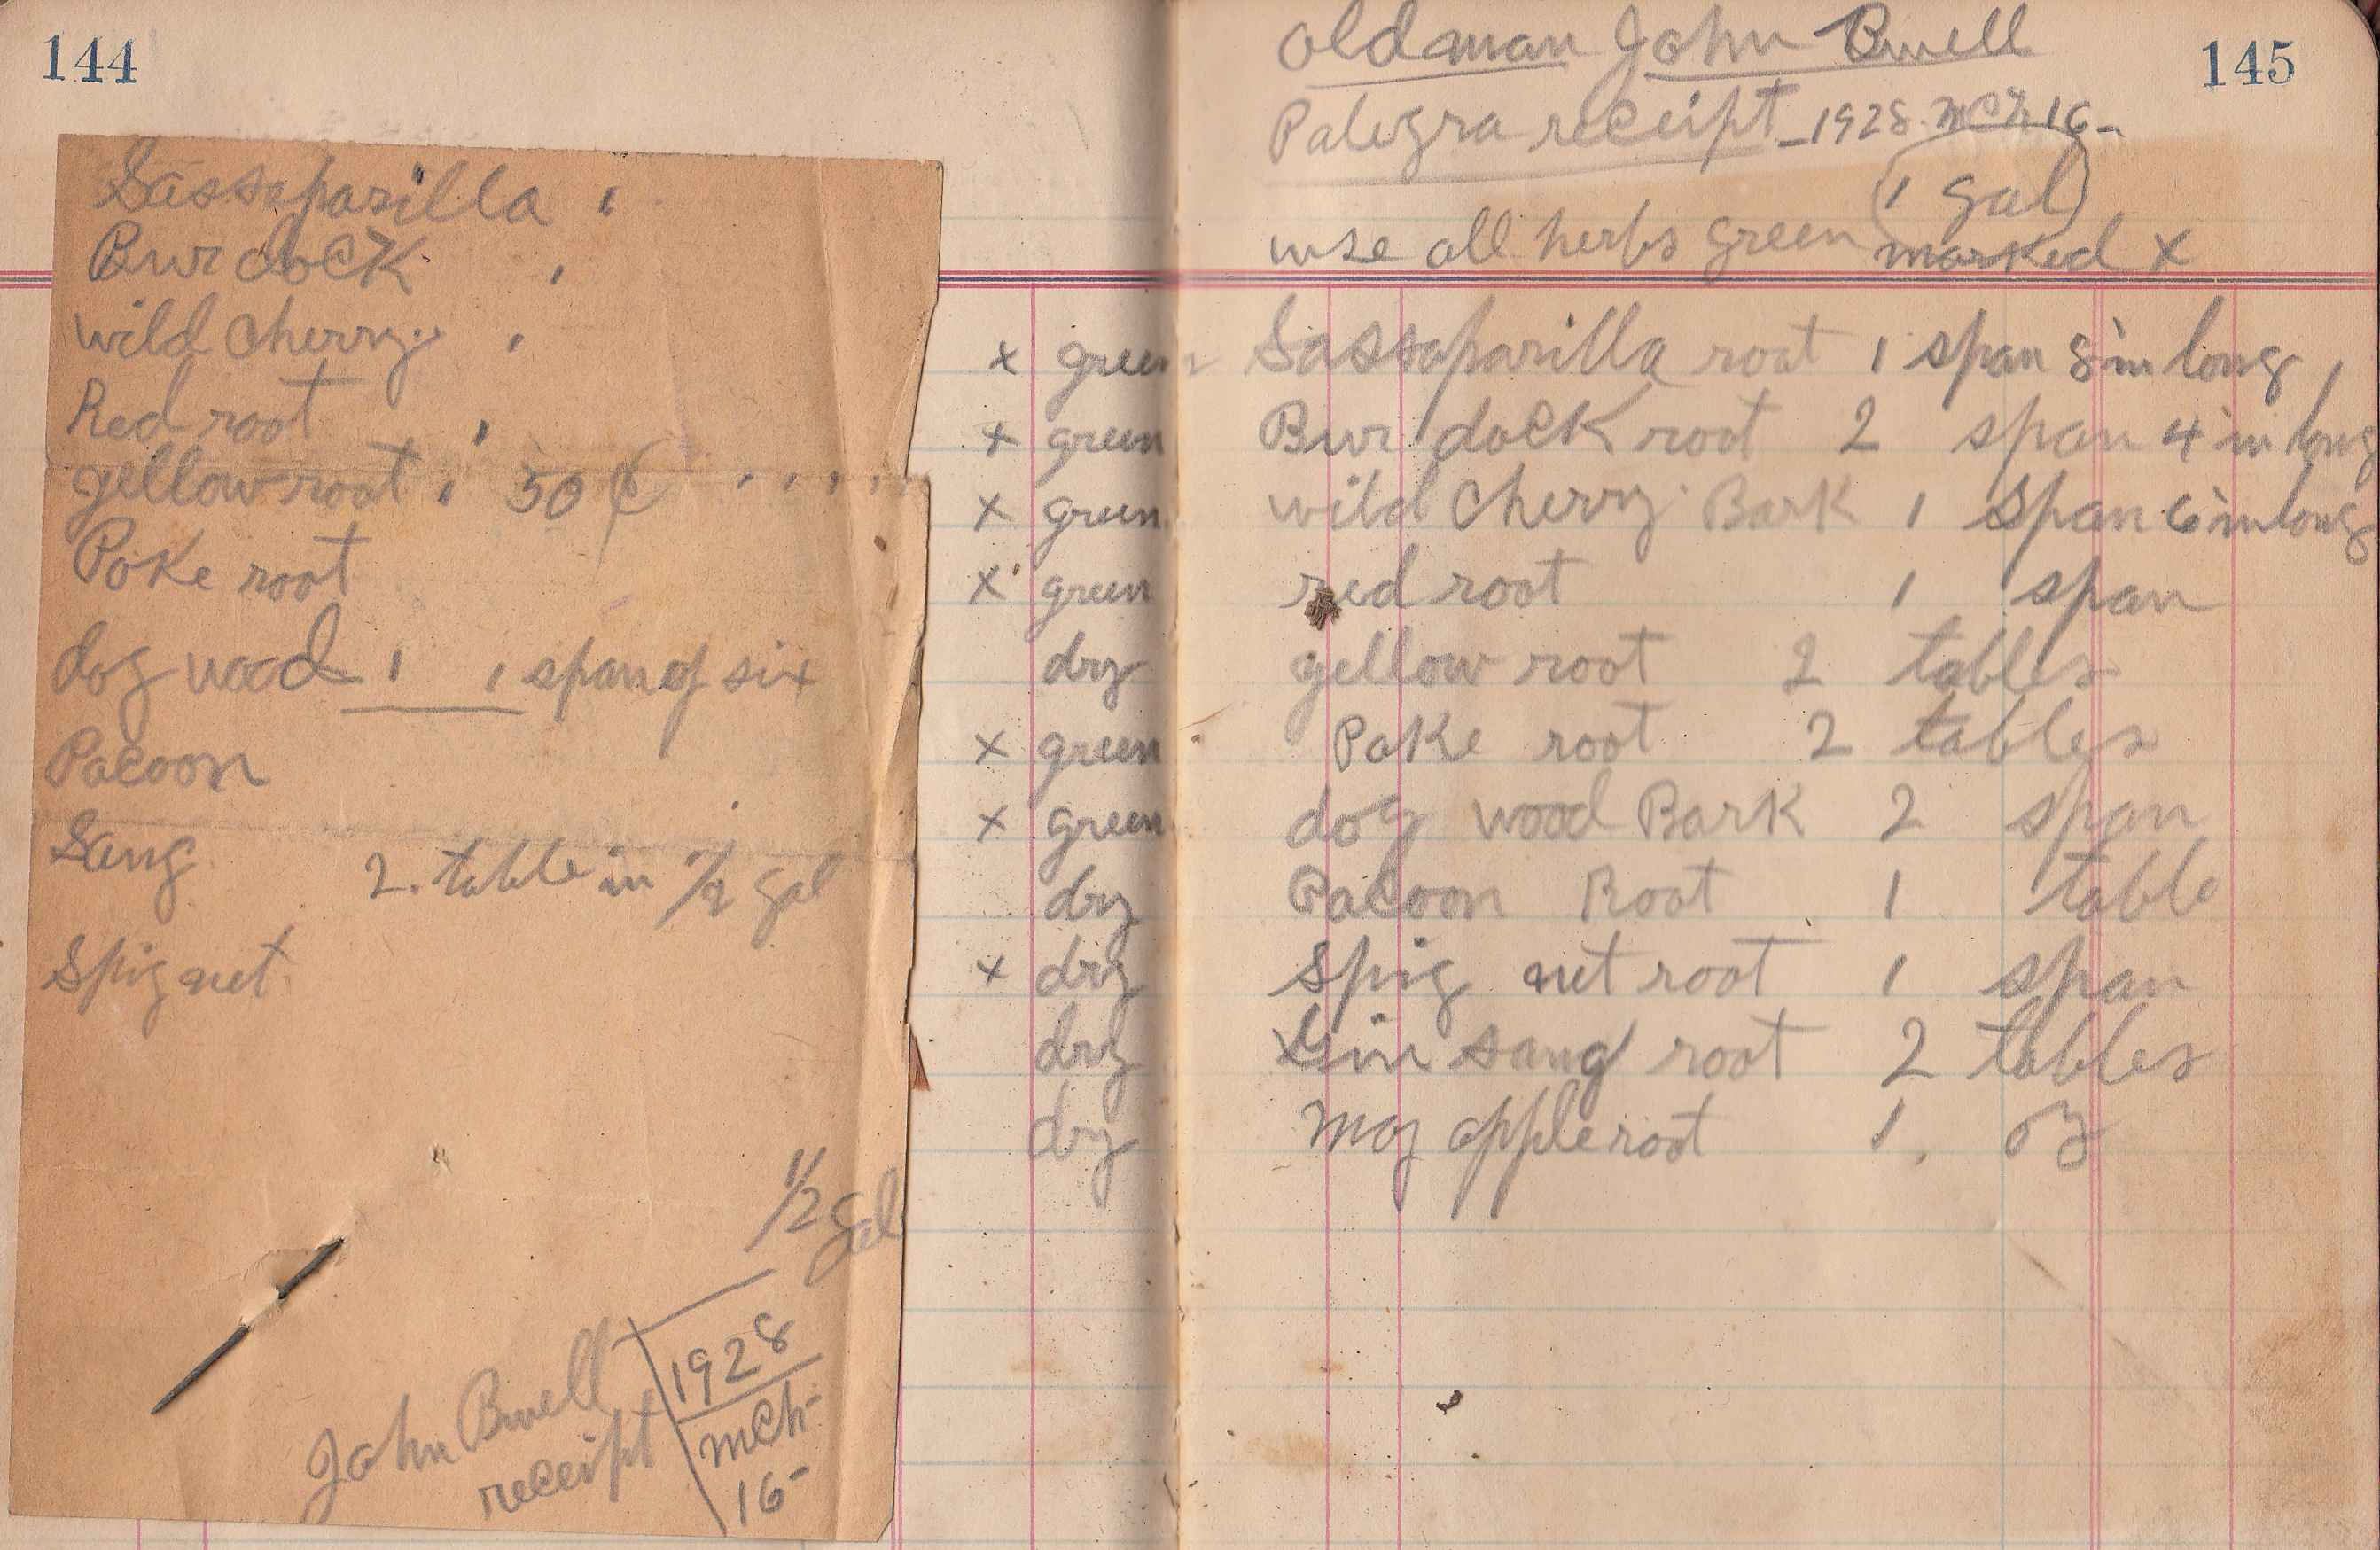 144
Sassaparilla
Bur dock
wild cherry
Red root
yellow root 50 ¢
Poke root
dog wood 1 1 span of six
Pocoon
Sang 2. table in 1/2 gal
Spig net
1/2 gal
John Buell
receipt
1928
mch-
16-
145
old man John Buell
Palegra receipt - 1928. mch 16-
1 gal
use all herbs green marked x
x green Sassaparilla root 1 span 8 in long
x green Bur dock root 2 span 4 in long
x green wild cherry Bark 1 span 6 in long
x green red root 1 span
dry yellow root 2 tables
x green Poke root 2 tables
x green dog wood Bark 2 span
dry Pocoon Root 1 table
x dry spig net root 1 span
dry Gin sang root 2 tables
dry may apple root 1. oz